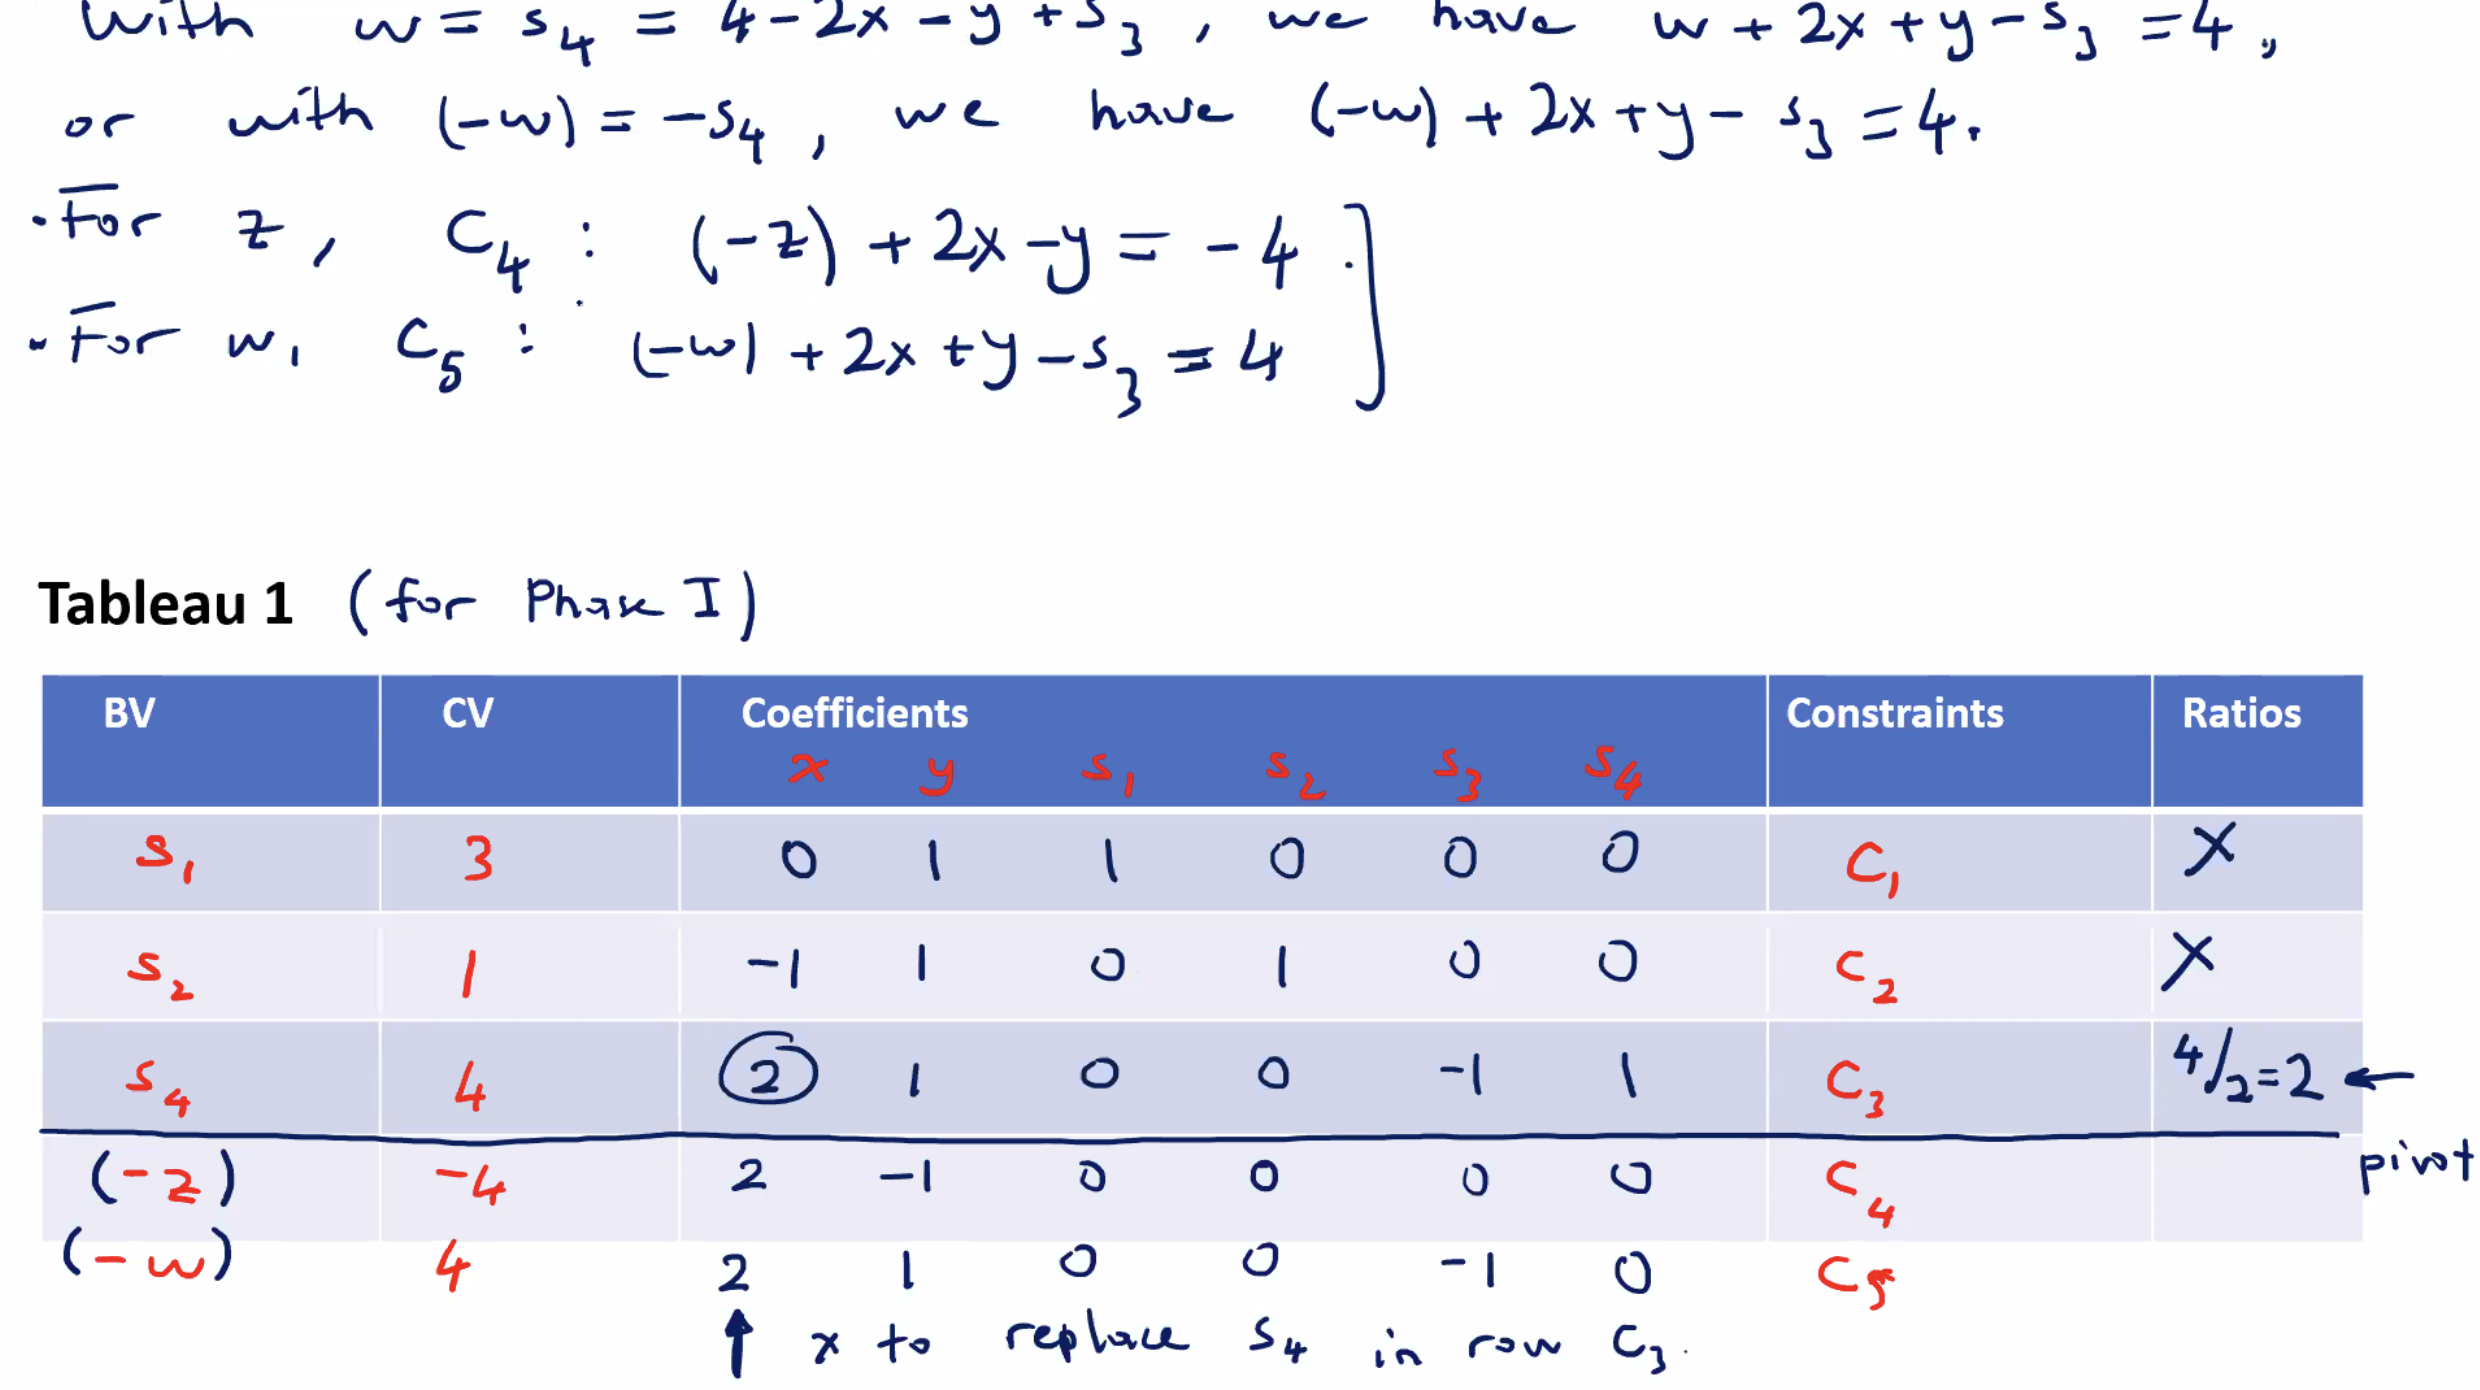 With w = s₄ = 4 - 2x - y + s₃ , we have w + 2x + y - s₃ = 4 ,
or with (-w) = -s₄ , we have (-w) + 2x + y - s₃ = 4.
· For z , C₄ : (-z) + 2x - y = - 4 .
· For w, C₅ : (-w) + 2x + y - s₃ = 4
Tableau 1 (for Phase I)
BV CV Coefficients Constraints Ratios
x y s₁ s₂ s₃ s₄
s₁ 3 0 1 1 0 0 0 C₁ X
s₂ 1 -1 1 0 1 0 0 C₂ X
s₄ 4 2 1 0 0 -1 1 C₃ 4/2 = 2 ←
pivot
(-z) -4 2 -1 0 0 0 0 C₄
(-w) 4 2 1 0 0 -1 0 C₅
↑ x to replace s₄ in row C₃.